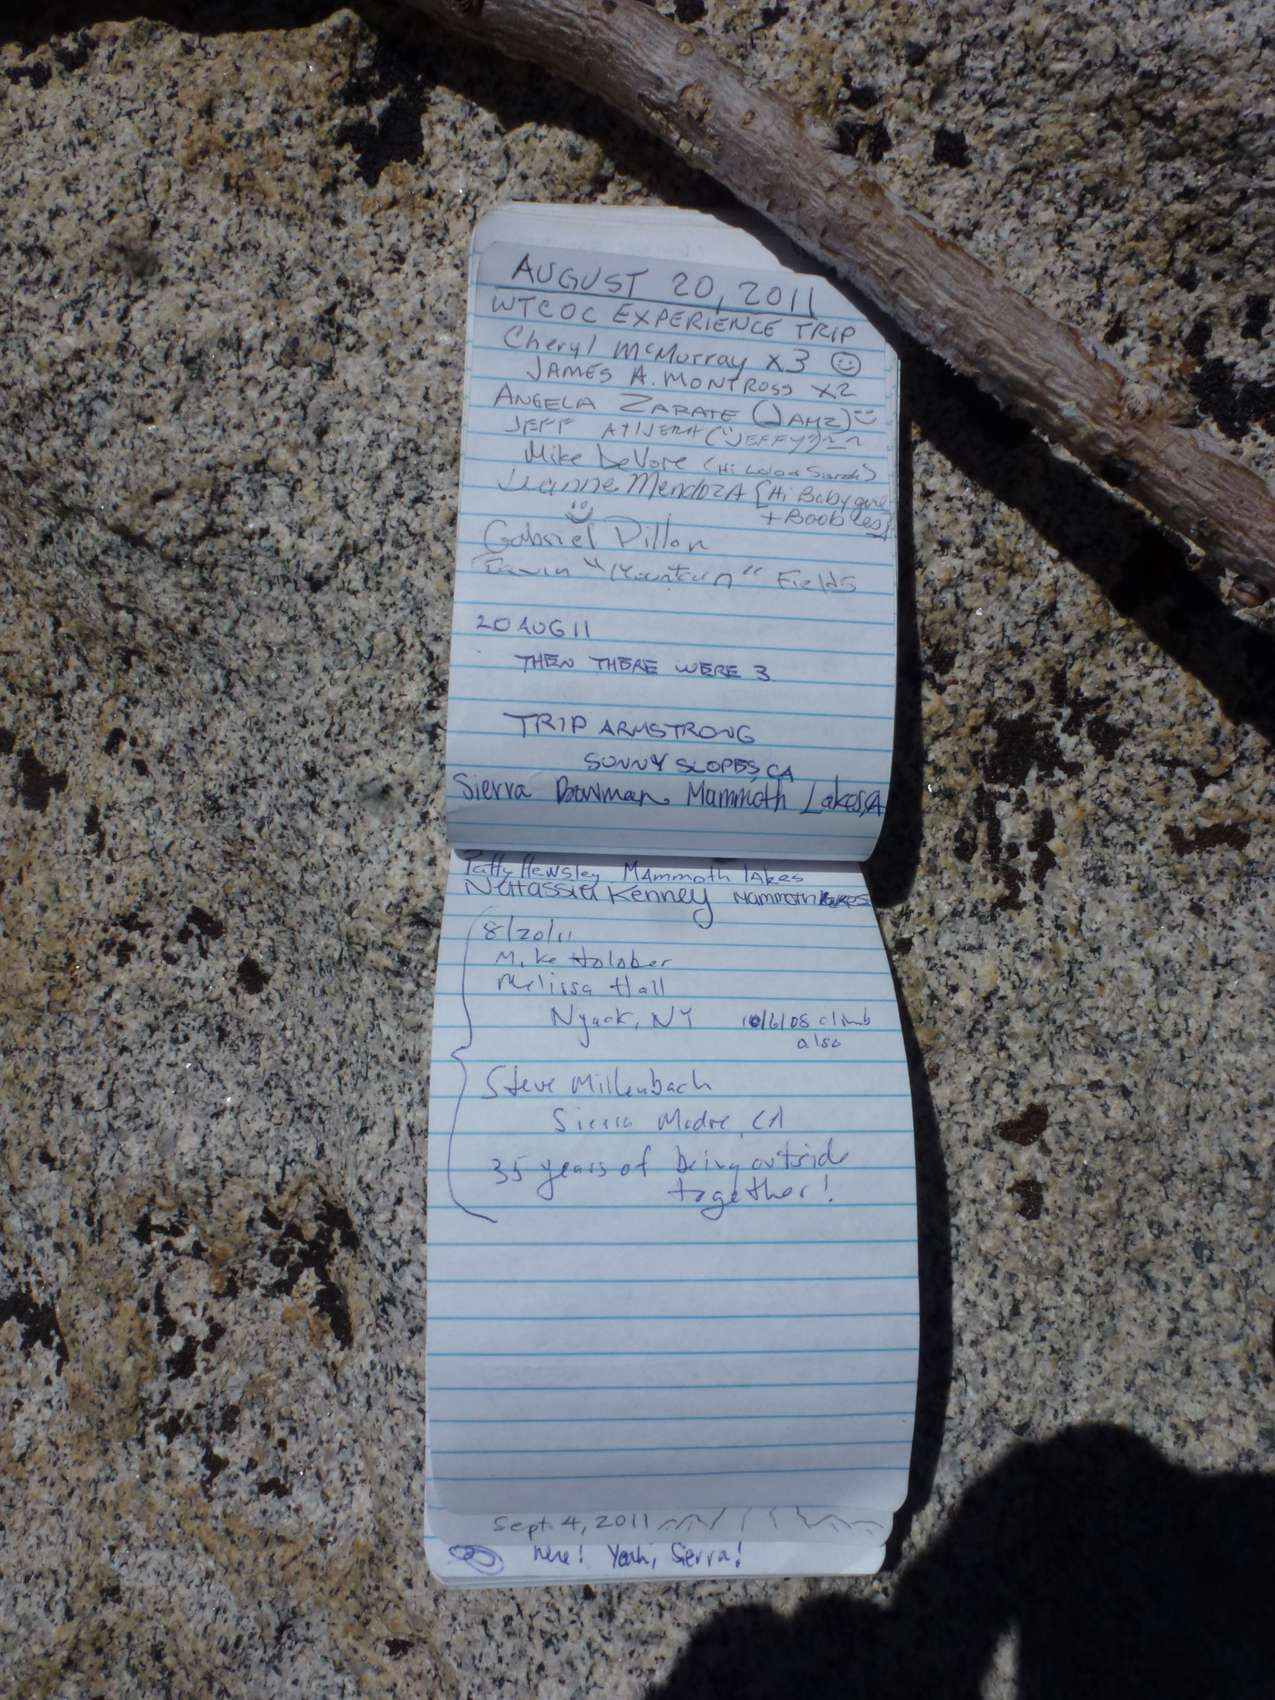 AUGUST 20, 2011
WTCOC EXPERIENCE TRIP
Cheryl McMurray x3
JAMES A. MONTROSS x2
ANGELA ZARATE (JAMZ)
JEFF (JEFFY)
Mike DeVore (Hi Lola & Sarah)
Jeanne Mendoza [Hi Baby girl
+ Boobles]
Gabriel Dillon
"Mountain" Fields
20 AUG 11
THEN THERE WERE 3
TRIP ARMSTRONG
SUNNY SLOPES, CA
Sierra Bowman Mammoth Lakes, CA
Patty Hewsley Mammoth lakes
Natassia Kenney Mammoth Lakes
8/20/11
Mike Holober
Melissa Hall
Nyack, NY 10/6/08 climb
also
Steve Millenbach
Sierra Madre, CA
35 years of being outside
together!
Sept. 4, 2011
here! Yeah, Sierra!